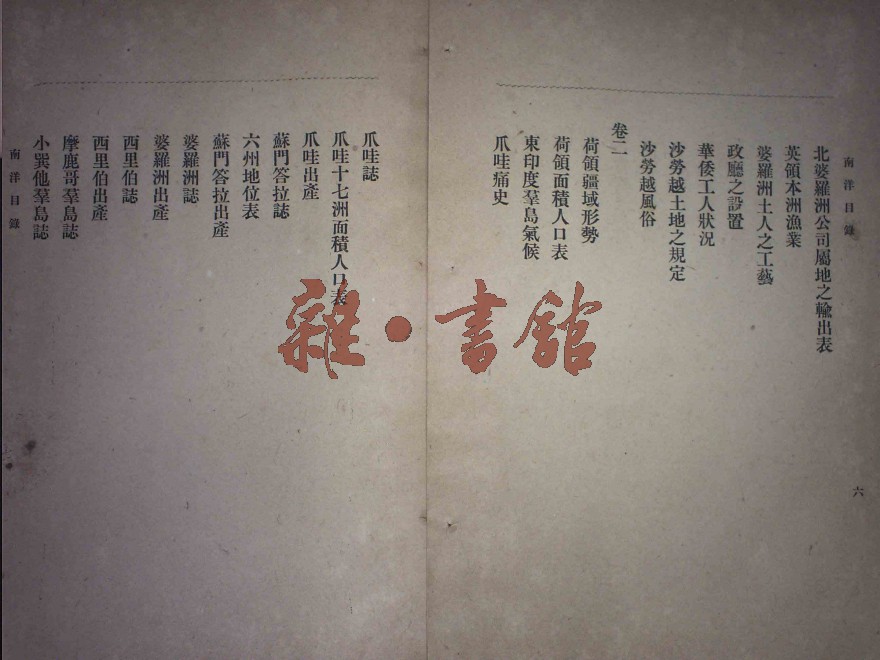 南洋目錄
北婆羅洲公司屬地之輸出表
英領本洲漁業
婆羅洲土人之工藝
政廳之設置
華倭工人狀況
沙勞越土地之規定
沙勞越風俗
卷二
荷領疆域形勢
荷領面積人口表
東印度羣島氣候
爪哇痛史
六
爪哇誌
爪哇十七洲面積人口表
爪哇出產
蘇門答拉誌
六州地位表
蘇門答拉出產
婆羅洲誌
婆羅洲出產
西里伯誌
西里伯出產
摩鹿哥羣島誌
小巽他羣島誌
南洋目錄
雜·書館